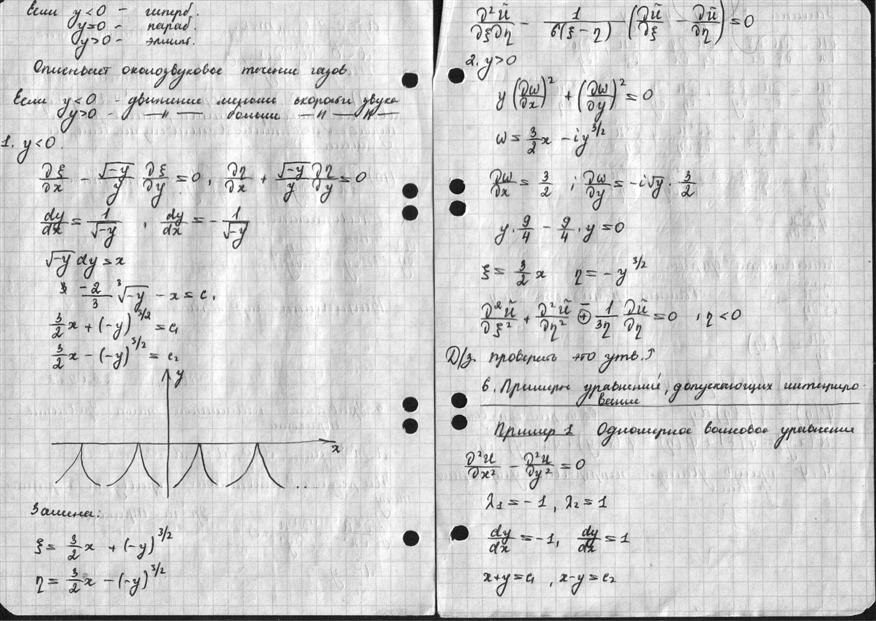 Если y<0 – гиперб.
y=0 – параб.
y>0 – эллипт.
Описывает околозвуковое течение газов
Если y<0 – движение меньше скорости звука
y>0 – —"— больше —"— —"—
1. y<0.
∂ξ/∂x − √-y/y ∂ξ/∂y = 0, ∂η/∂x + √-y/y ∂η/∂y = 0
dy/dx = 1/√-y , dy/dx = − 1/√-y
√-y dy = x
-2/3 ³√-y − x = c,
3/2 x + (-y)^3/2 = c₁
3/2 x − (-y)^3/2 = c₂
y
x
...
Замена:
ξ = 3/2 x + (-y)^3/2
η = 3/2 x − (-y)^3/2
∂²ũ/∂ξ∂η − 1/6(ξ−η) (∂ũ/∂ξ − ∂ũ/∂η) = 0
2. y>0
y (∂ω/∂x)² + (∂ω/∂y)² = 0
ω = 3/2 x − i y^3/2
∂ω/∂x = 3/2 ; ∂ω/∂y = −i√y · 3/2
y · 9/4 − 9/4 · y = 0
ξ = 3/2 x η = − y^3/2
∂²ũ/∂ξ² + ∂²ũ/∂η² ⊕ 1/3η ∂ũ/∂η = 0 , η < 0
Д/з. проверить это утв.↑
6. Примеры уравнений, допускающих интегриро-
вание
Пример 1 Одномерное волновое уравнение
∂²u/∂x² − ∂²u/∂y² = 0
λ₁ = −1 , λ₂ = 1
dy/dx = −1, dy/dx = 1
x+y = c₁ , x−y = c₂